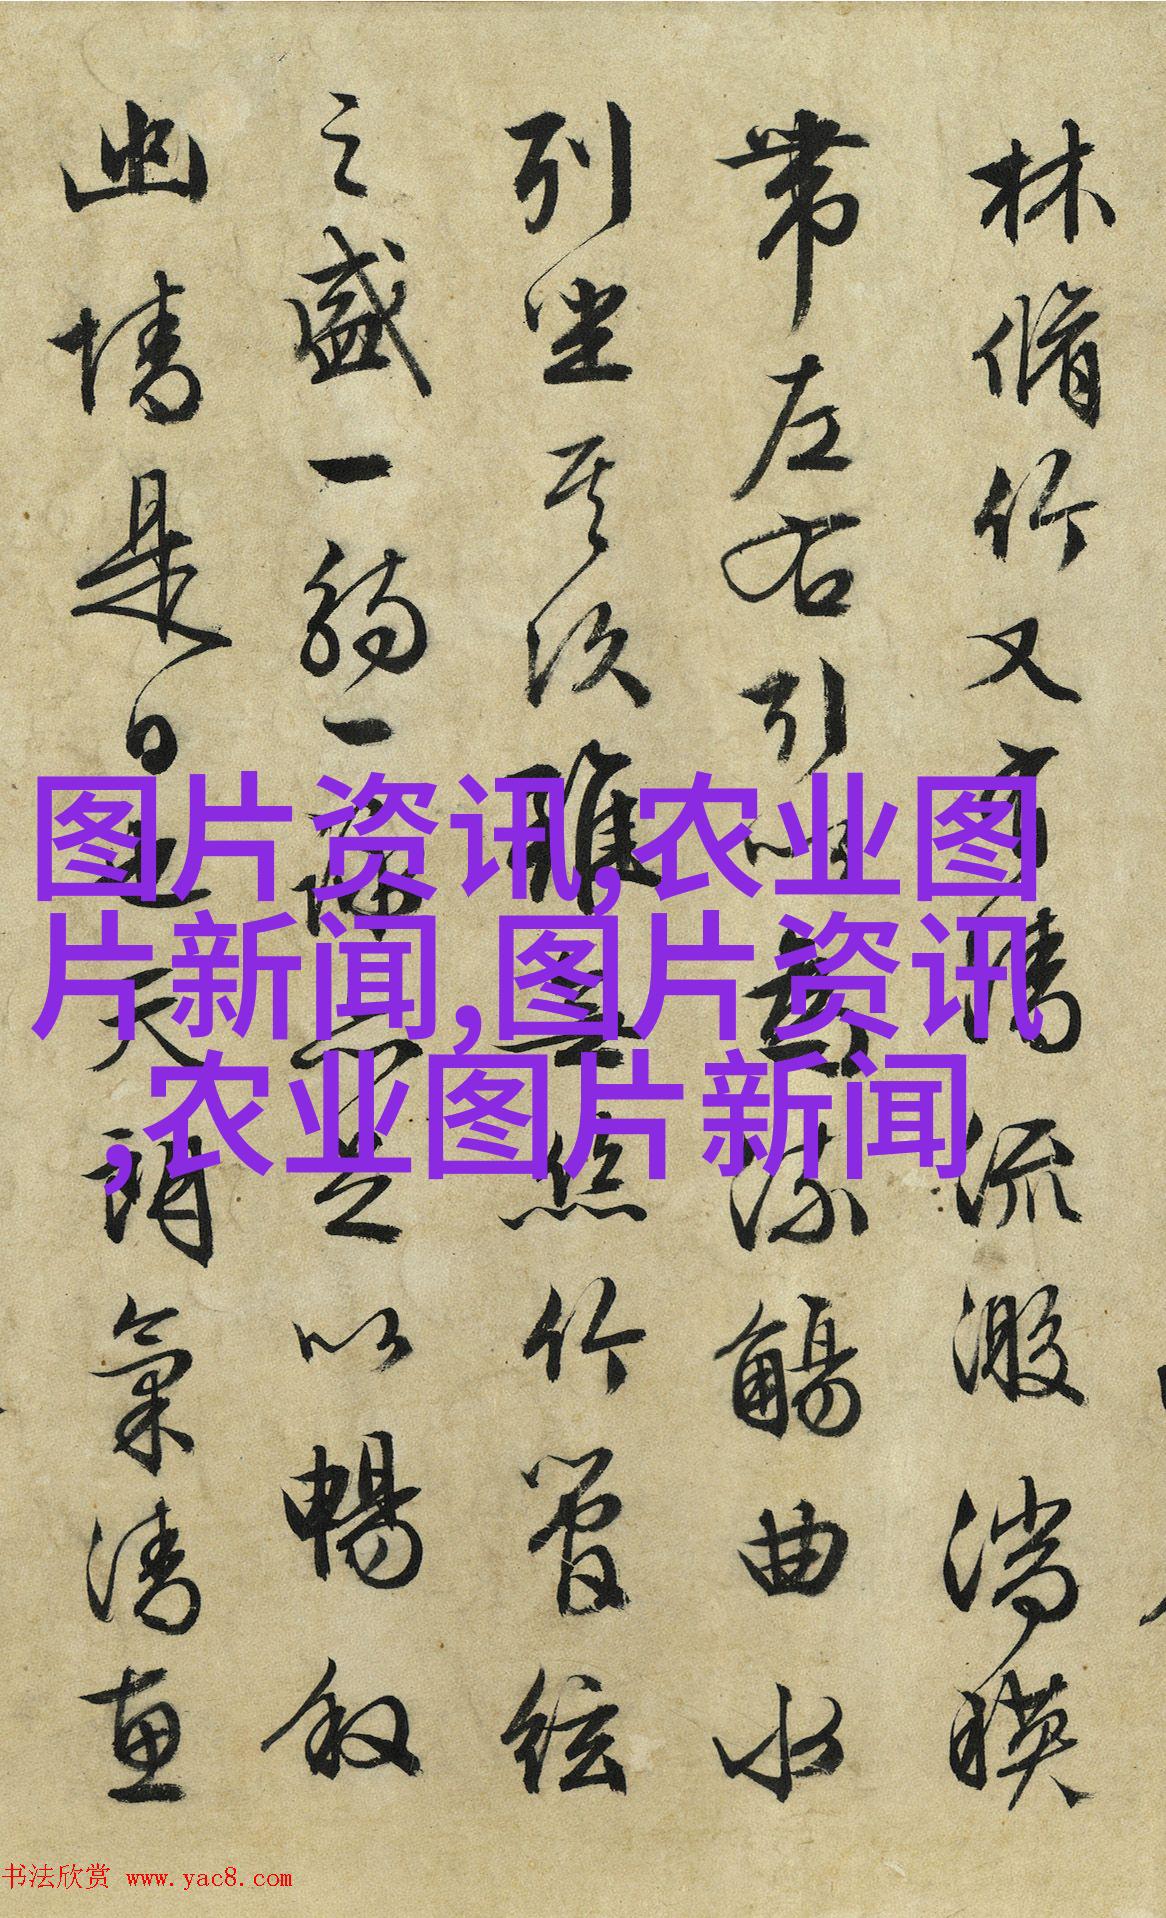 林脩竹又有清流激湍暎
帶左右引以為流觴曲水
列坐其次雖無絲竹管絃
之盛一觴一詠亦足以暢敘
幽情是日也天朗氣清惠
图片资讯,农业图
片新闻,图片资讯
,农业图片新闻
书法欣赏 www.yac8.com